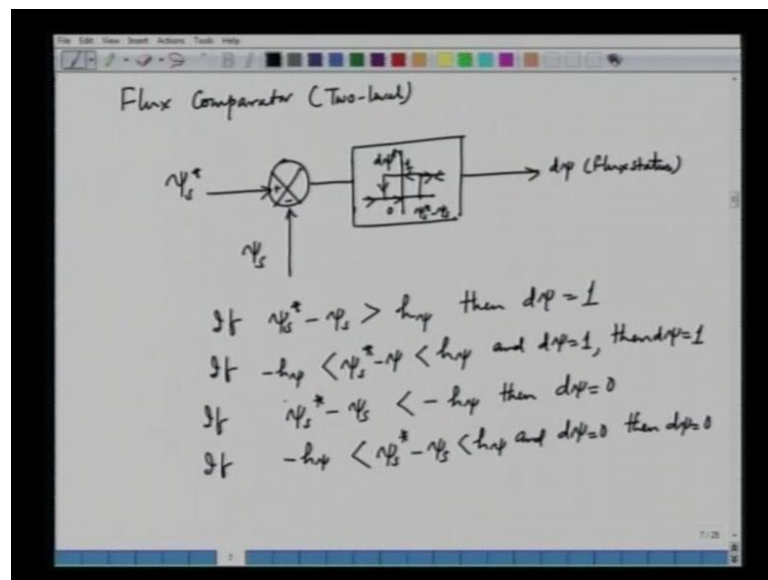 File Edit View Insert Actions Tools Help
Flux Comparator (Two-level)
ψs*
+
-
ψs
dψ
1
0
ψs*-ψs
dψ (flux status)
If ψs* - ψs > hψ then dψ = 1
If -hψ < ψs* - ψ < hψ and dψ=1, then dψ=1
If ψs* - ψs < - hψ then dψ=0
If -hψ < ψs* - ψs < hψ and dψ=0 then dψ=0
7/25
7